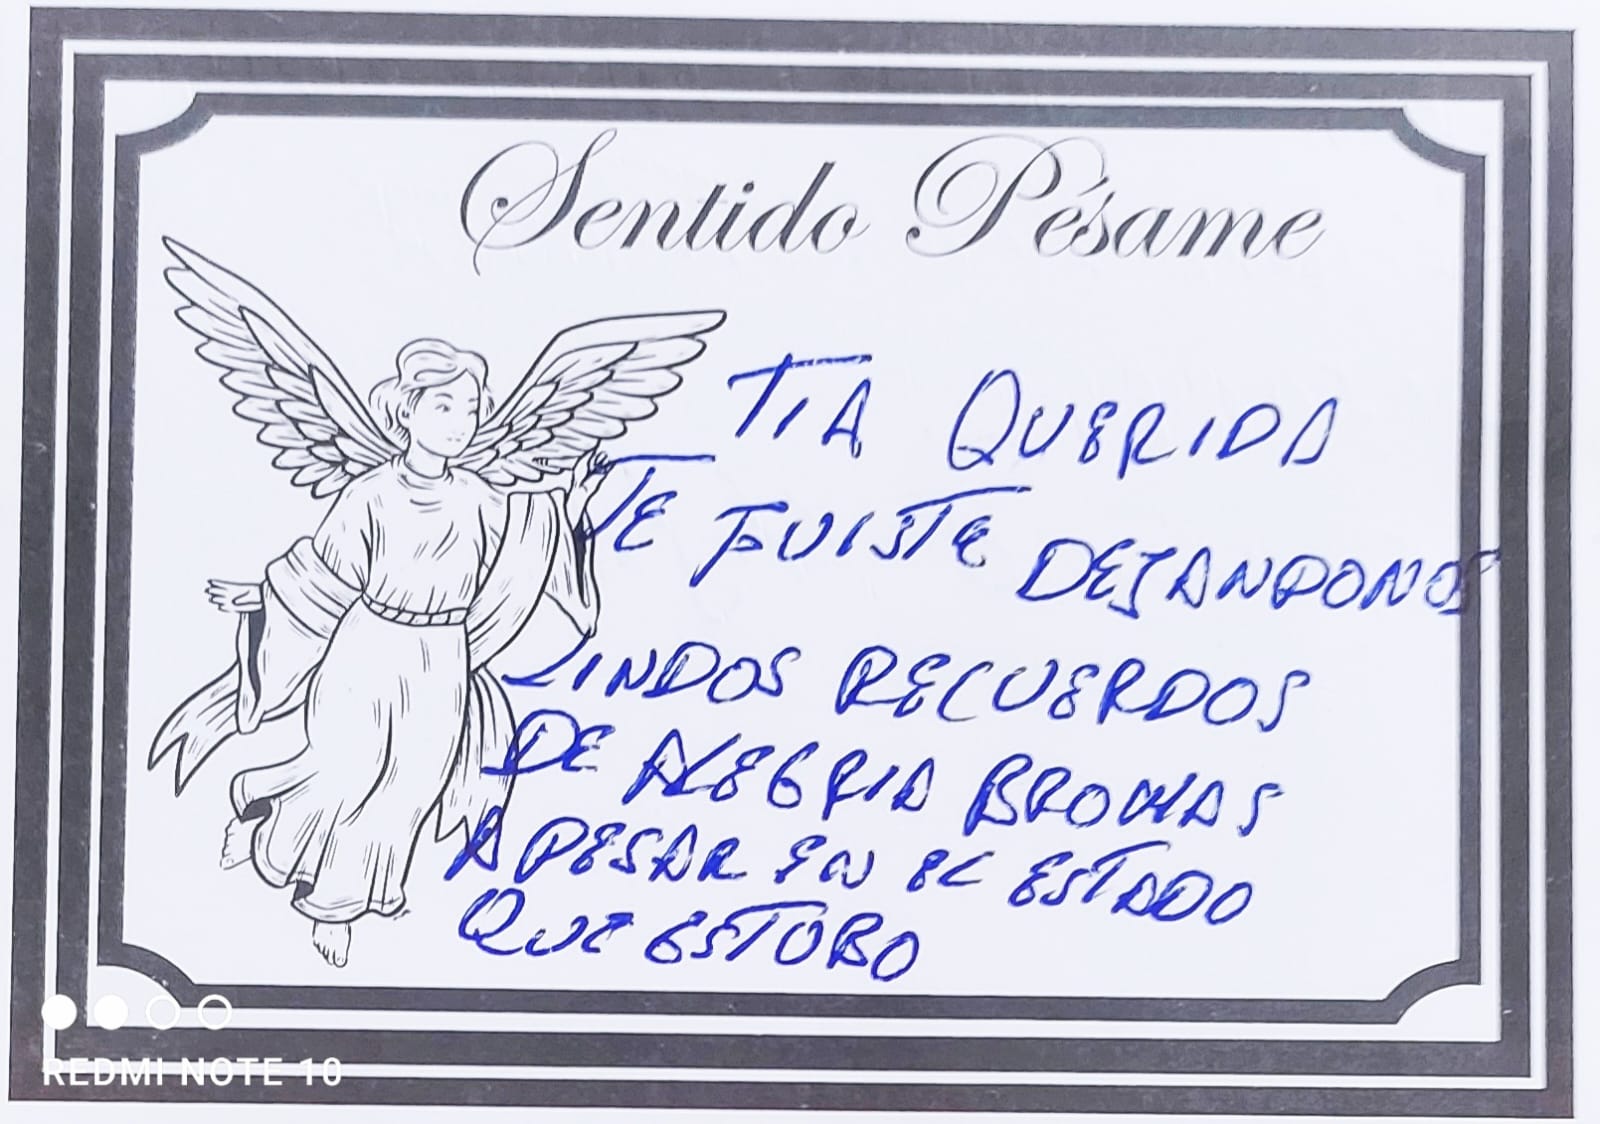 Sentido Pésame
TIA QUERIDA
TE FUISTE DEJANDONOS
LINDOS RECUERDOS
DE ALEGRIA BROMAS
APESAR EN EL ESTADO
QUE ESTOBO
REDMI NOTE 10